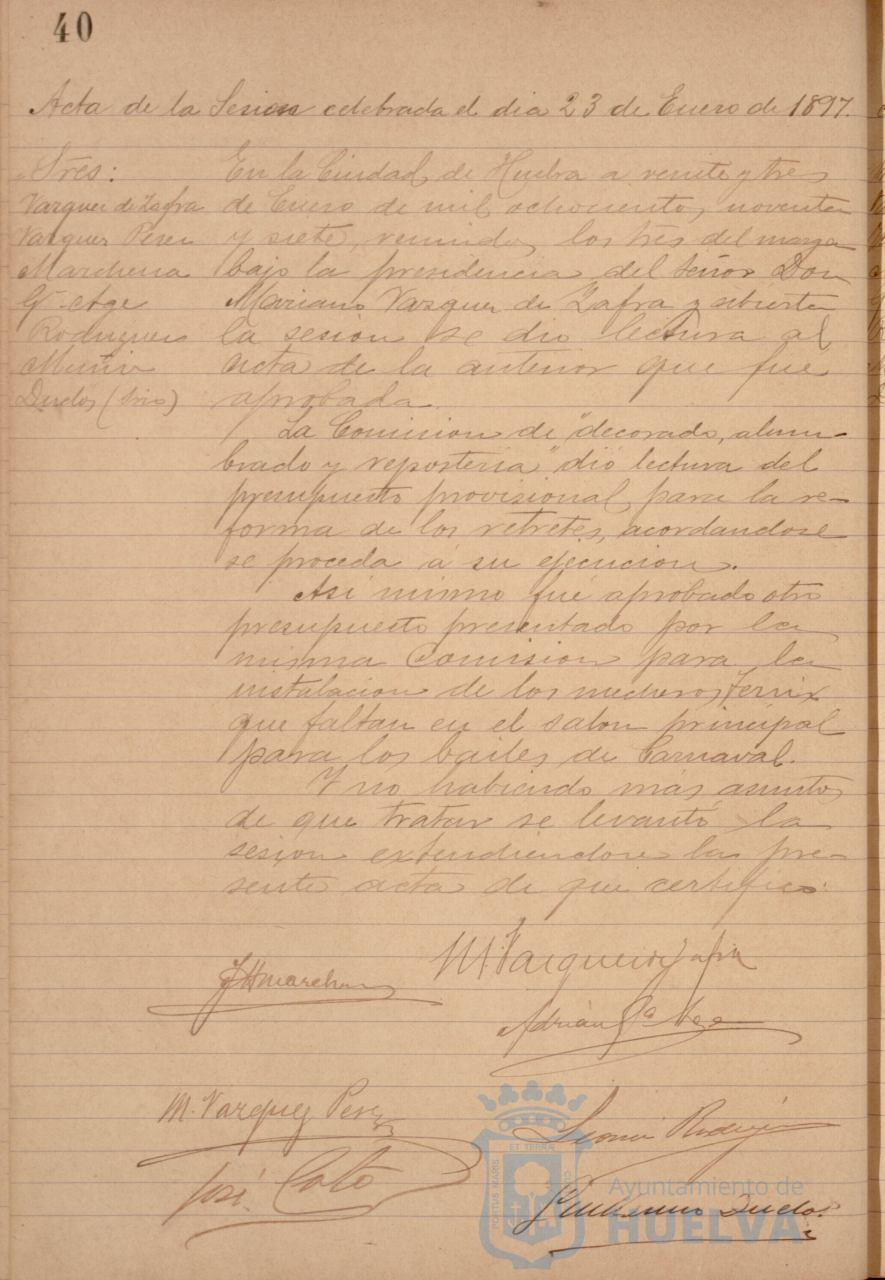 40
Acta de la Sesion celebrada el dia 23 de Enero de 1897.
Sres:
Vazquez de Zafra
Vazquez Perez
Marchena
Gª Age
Rodriguez
Muñiz
Duclos (Srio)
En la Ciudad de Huelva a veinte y tres
de Enero de mil ochocientos noventa
y siete, reunidos los sres del margen
bajo la presidencia del Señor Don
Mariano Vazquez de Zafra y abierta
la sesion se dio lectura al
acta de la anterior que fue
aprobada.
La Comision de "decorado, alum-
brado y reposteria" dió lectura del
presupuesto provisional para la re-
forma de los retretes, acordandose
se proceda á su ejecucion.
Asi mismo fué aprobado otro
presupuesto presentado por la
misma Comision para la
instalacion de los mecheros
que faltan en el salon principal
para los bailes de Carnaval.
Y no habiendo más asuntos
de que tratar se levantó la
sesion extendiendose la pre-
sente acta de que certifico.
M. Vazquez de Zafra
Marchena
Adrián Gª Age
M. Vazquez Perez
Rodriguez
José
Guillermo Duclos
PORTUS MARIS
ET TERRAE
CUSTODIA
Ayuntamiento de
HUELVA